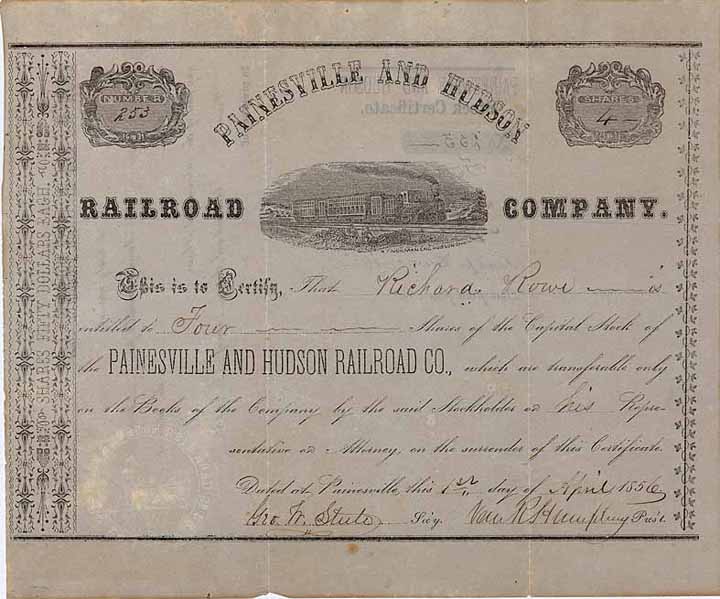 NUMBER
253
PAINESVILLE AND HUDSON
SHARES
4
RAILROAD COMPANY.
This is to Certify, That Richard Rowe is
entitled to Four Shares of the Capital Stock of
the PAINESVILLE AND HUDSON RAILROAD CO., which are transferable only
on the Books of the Company by the said Stockholder or his Repre-
sentative or Attorney, on the surrender of this Certificate.
Dated at Painesville, this 1st day of April 1856
Geo. W. Steele Sec'y. Van R. Humphrey Pres't.
SHARES FIFTY DOLLARS EACH.